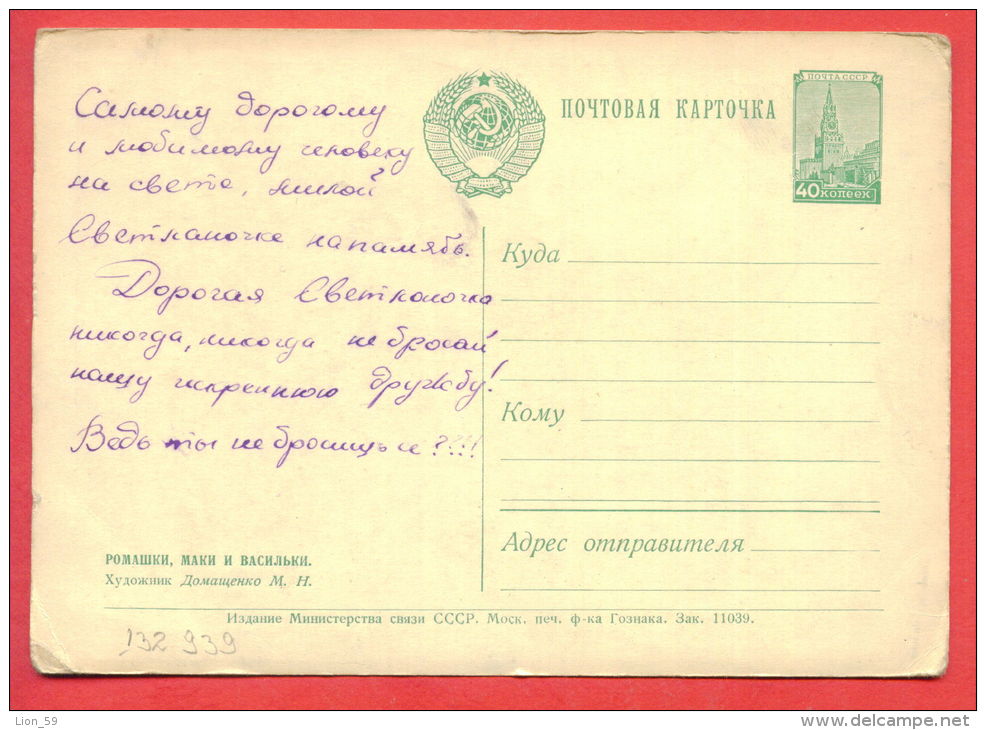 Самому дорогому
и любимому человеку
на свете, милой
Светланочке на память.
Дорогая Светланочка
никогда, никогда не бросай
нашу искреннюю дружбу!
Ведь ты не бросишь её???!!
ПОЧТОВАЯ КАРТОЧКА
ПОЧТА СССР
40 копеек
Куда
Кому
Адрес отправителя
РОМАШКИ, МАКИ И ВАСИЛЬКИ.
Художник Домащенко М. Н.
Издание Министерства связи СССР. Моск. печ. ф-ка Гознака. Зак. 11039.
132 939
Lion_59
www.delcampe.net